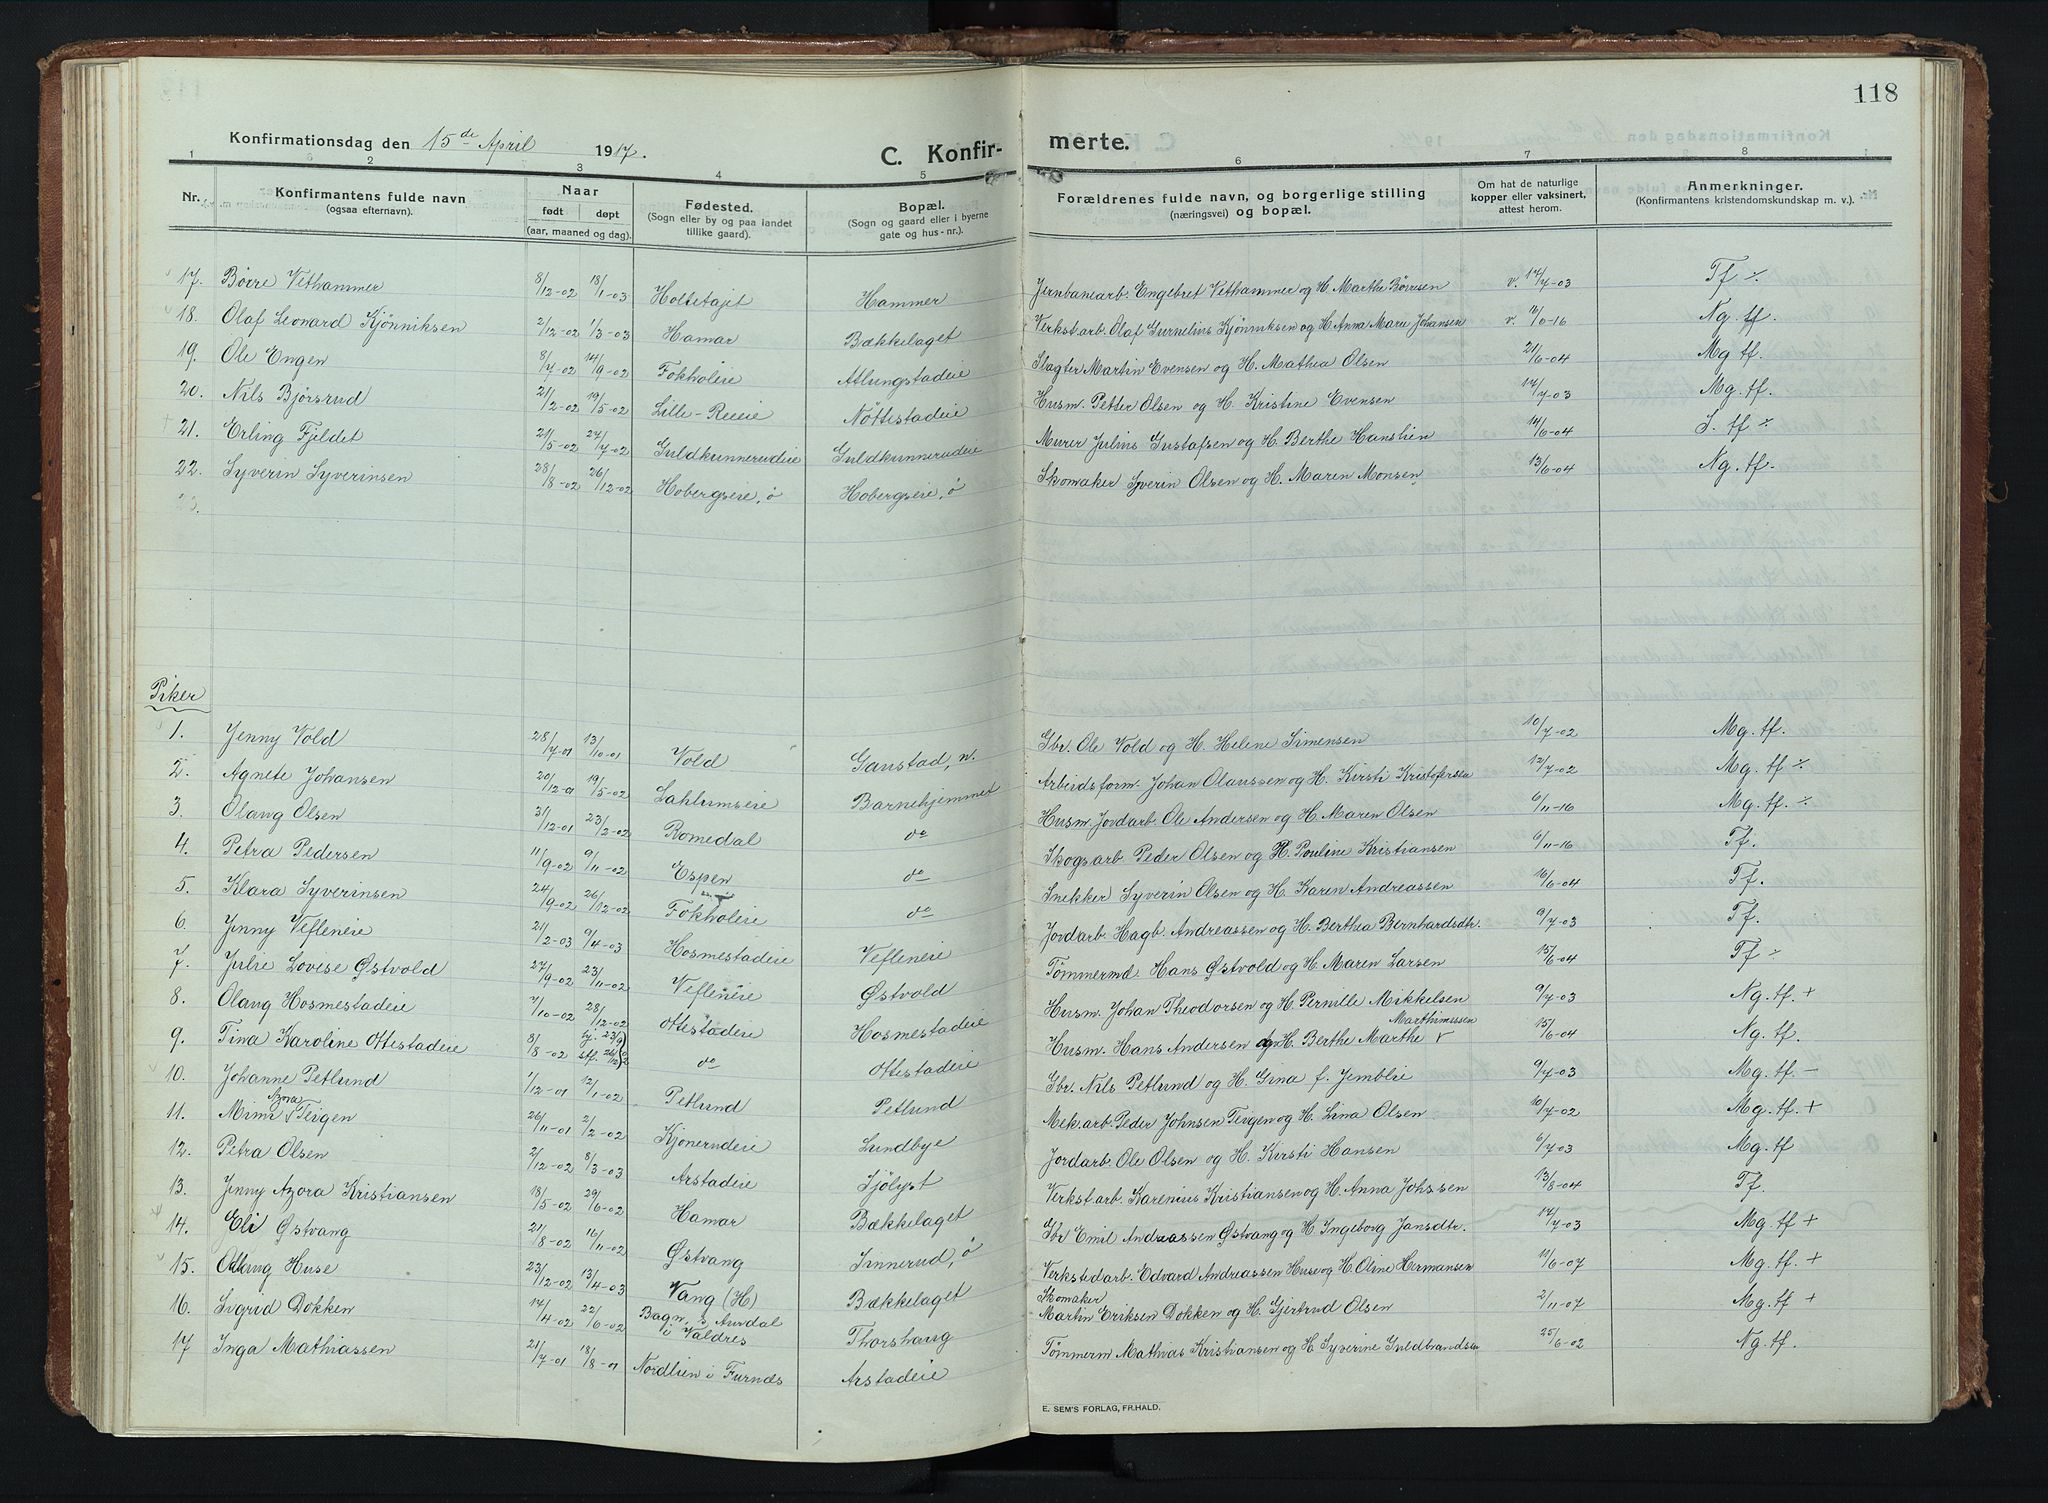 118
Konfirmationsdag den 15de April 1917.
C. Konfir-
merte.
1 2 3 4 5 6 7 8
Nr. Konfirmantens fulde navn (ogsaa efternavn). Naar født døpt (aar, maaned og dag). Fødested. (Sogn eller by og paa landet tillike gaard). Bopæl. (Sogn og gaard eller i byerne gate og hus-nr.). Forældrenes fulde navn, og borgerlige stilling (næringsvei) og bopæl. Om hat de naturlige kopper eller vaksinert, attest herom. Anmerkninger. (Konfirmantens kristendomskundskap m. v.).
17. Børre Vethammer 8/12-02 18/1-03 Holtetajet Hammer Jernbanearb. Engebret Vethammer og H. Marthe Børresen v. 14/7-03 Tf ÷
18. Olaf Leonard Kjønniksen 2/12-02 1/3-03 Hamar Bækkelaget Verkst.arb. Olaf Gunelius Kjønniksen og H. Anna Marie Johansen v. /10-16 Ng. tf.
19. Ole Engen 8/7-02 14/9-02 Fokholeie Atlungstadeie Slagter Martin Evensen og H. Mathea Olsen 21/6-04 Mg tf.
20. Nils Bjørsrud 21/2-02 19/5-02 Lille-Reeie Nøttestadeie Husm. Petter Olsen og H. Kristine Evensen 14/7-03 Mg. tf.
21. Erling Fjeldet 21/5-02 27/7-02 Guldkunnerudeie Guldkunnerudeie Murer Julius Gustafsen og H. Berthe Hanslien 14/6-04 S. tf ÷
22. Syverin Syverinsen 28/8-02 26/12-02 Hobergseie, ø Hobergseie, ø Skomaker Syverin Olsen og H. Maren Monsen 13/6-04 Ng. tf.
Piker
1. Jenny Vold 28/7-01 13/10-01 Vold Gaustad, n. Gbr. Ole Vold og H. Helene Simensen 10/7-02 Mg. tf.
2. Agnete Johansen 20/12-01 19/5-02 Lahlumseie Barnehjemmet Arbeidsform. Johan Olaussen og H. Kirsti Kristofersen 12/7-02 Mg. tf ÷
3. Olaug Olsen 31/12-01 23/2-02 Romedal do Husm. Jordarb. Ole Andersen og H. Maren Olsen 6/11-16 Mg. tf. ÷
4. Petra Pedersen 11/9-02 9/11-02 Espen do Skogsarb. Peder Olsen og H. Pouline Kristiansen 6/11-16 Tf.
5. Klara Syverinsen 24/9-02 26/12-02 Fokholeie do Snekker Syverin Olsen og H. Karen Andreassen 16/6-04 Tf.
6. Jenny Vefleneie 21/2-03 9/4-03 Hosmestadeie Vefleneie Jordarb. Hagb. Andreassen og H. Berthea Bernhardsdtr. 9/7-03 Tf.
7. Julie Lovise Østvold 27/9-02 23/11-02 Vefleneie Østvold Tømmermd. Hans Østvold og H. Maren Larsen 15/6-04 Tf ÷
8. Olaug Hosmestadeie 7/10-02 28/12-02 Ottestadeie Hosmestadeie Husm. Johan Theodorsen og H. Pernille Mikkelsen 9/7-03 Ng. tf. +
9. Tina Karoline Ottestadeie 8/8-02 hj. 23/9 stf. 26/12 02 do Ottestadeie Husm. Hans Andersen og H. Berthe Marthe Marthinussen 15/6-04 Ng. tf.
10. Johanne Petlund 1/12-01 12/1-02 Petlund Petlund Gbr. Nils Petlund og H. Gina f. Jemblie 9/7-03 Mg. tf. –
11. Mimi Azora Teigen 26/11-01 2/2-02 Kjonerudeie Lundbye Mek.arb. Peder Johnsen Teigen og H. Lina Olsen 10/7-02 Mg. tf. +
12. Petra Olsen 2/12-02 8/3-03 Arstadeie Sjölyst Jordarb. Ole Olsen og H. Kirsti Hansen 6/7-03 Mg. tf
13. Jenny Azora Kristiansen 18/5-02 29/6-02 Hamar Bækkelaget Verkst.arb. Karenius Kristiansen og H. Anna Johssen 13/8-04 Tf.
14. Eli Østvang 21/8-02 16/11-02 Østvang Finnerud, ø Gbr Emil Andreassen Østvang og H. Ingeborg Jansdtr. 14/7-03 Mg. tf +
15. Olaug Huse 23/12-02 13/4-03 Vang (H) Bækkelaget Verkstedarb. Edvard Andreassen Huse og H. Oline Hermansen 11/6-07 Mg. tf. +
16. Sigrid Dokken 14/4-02 22/6-02 Bagn, s Aurdal i Valdres Thorshaug Skomaker Martin Eriksen Dokken og H. Gjertrud Olsen 2/11-07 Mg. tf +
17 Inga Mathiassen 21/7-01 18/8-01 Nordlien i Furnes Arstadeie Tømmerm Mathias Kristiansen og H. Syverine Guldbrandsen 25/6-02 Ng. tf.
E. SEM'S FORLAG, FR.HALD.